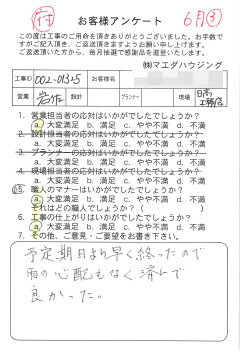 付 お客様アンケート 6月③
この度は工事のご用命を頂きありがとうございました。お手数で
すがご記入頂き、ご返送頂きますようお願い申し上げます。
ご返送頂いた方から、毎月抽選で感謝品を進呈します。
㈱マエダハウジング
工事ID 002-01325 お客様名
営業 岩佐 設計 プランナー 現場
1. 営業担当者の応対はいかがでしたでしょうか?
a. 大変満足 b. 満足 c. やや不満 d. 不満
2. 設計担当者の応対はいかがでしたでしょうか?
a. 大変満足 b. 満足 c. やや不満 d. 不満
3. プランナーの応対はいかがでしたでしょうか?
a. 大変満足 b. 満足 c. やや不満 d. 不満
4. 現場担当者の応対はいかがでしたでしょうか?
a. 大変満足 b. 満足 c. やや不満 d. 不満
5. 職人のマナーはいかがでしたでしょうか?
a. 大変満足 b. 満足 c. やや不満 d. 不満
それはどの職人でしょうか?( )
6. 工事の仕上がりはいかがでしたでしょうか?
a. 大変満足 b. 満足 c. やや不満 d. 不満
7. その他、ご意見・ご要望をお書き下さい。
予定期日より早く終ったので
雨の心配もなく済んで
良かった。